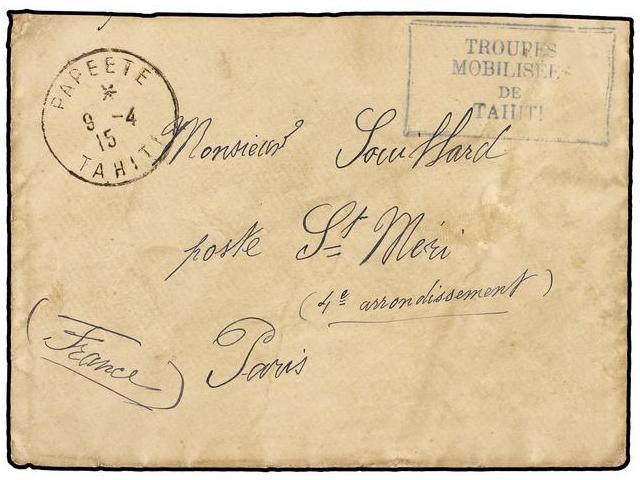 PAPEETE
*
9 -4
15
TAHITI
TROUPES
MOBILISÉES
DE
TAHITI
Monsieur Souffard
poste St Méri
(4e arrondissement)
Paris
(France)